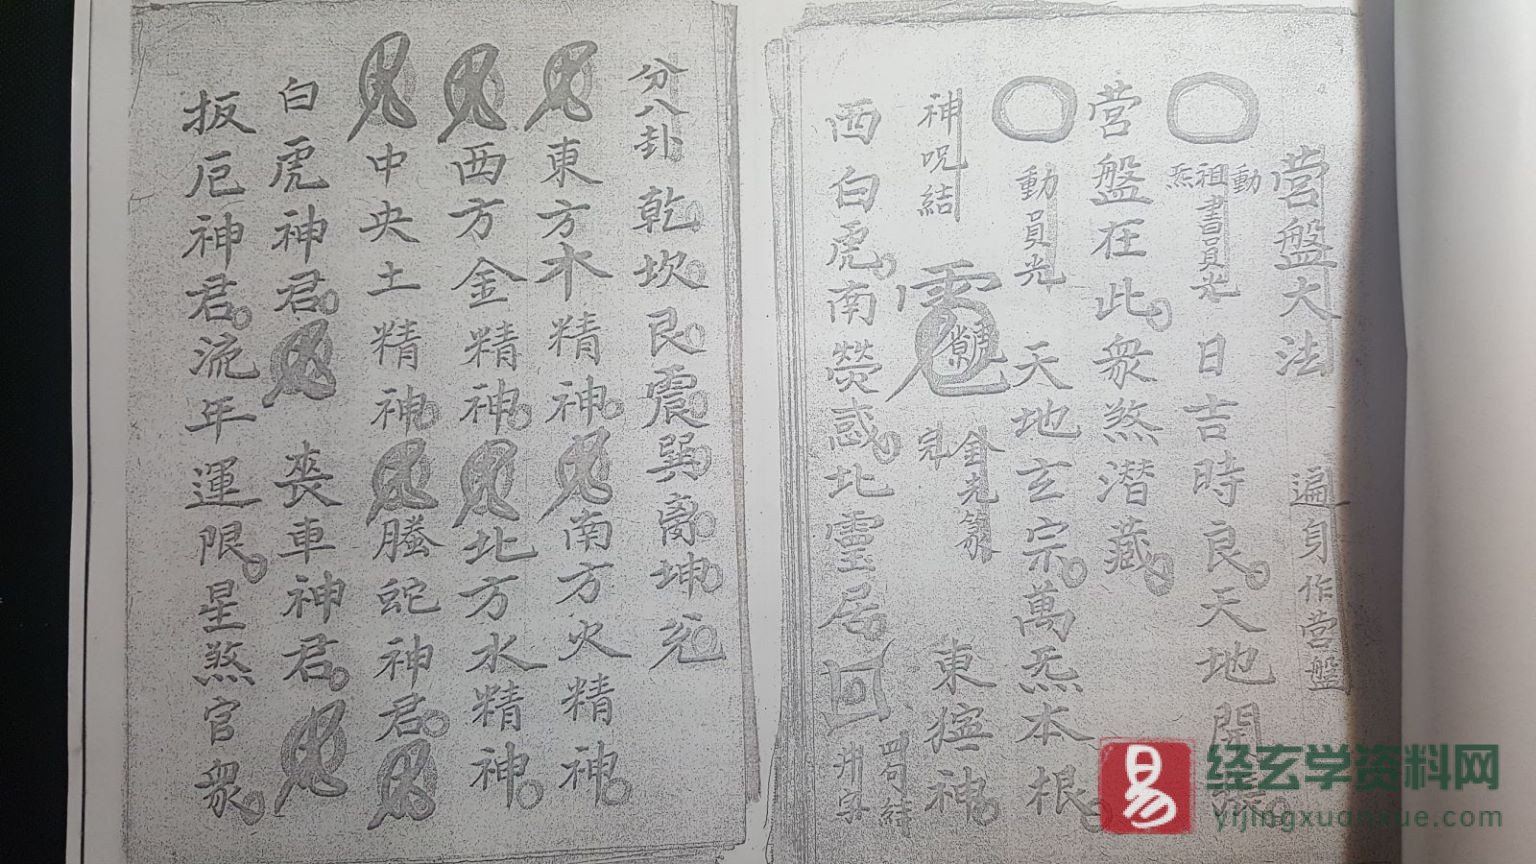 营盤大法 遍身作营盤
動祖炁書員光 日吉時良天地開
营盤在此衆煞潜藏
動員光 天地玄宗萬炁本根
神呪結 金光篆 東 神
西白虎南熒惑北靈居 四句結 卅字
分八卦 乾坎艮震巽离坤兑
東方木精神 南方火精神
西方金精神 北方水精神
中央土精神 螣蛇神君
白虎神君 喪車神君
扳厄神君流年運限星煞官衆
易
经玄学资料网
yijingxuanxue.com